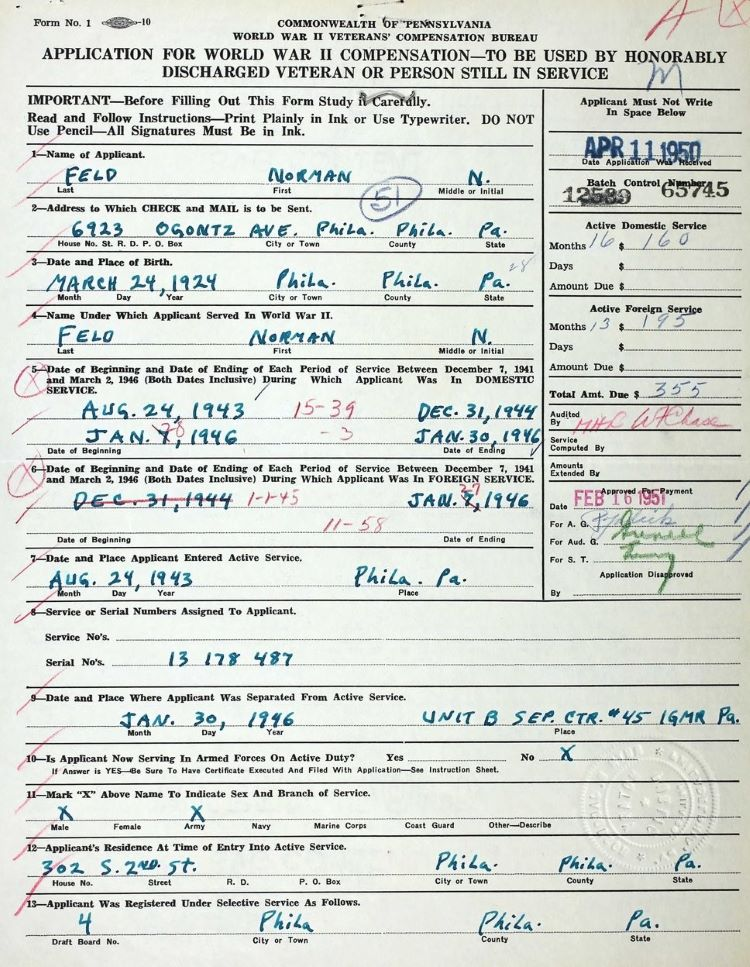 Form No. 1 -10
COMMONWEALTH OF PENNSYLVANIA
WORLD WAR II VETERANS' COMPENSATION BUREAU
APPLICATION FOR WORLD WAR II COMPENSATION—TO BE USED BY HONORABLY
DISCHARGED VETERAN OR PERSON STILL IN SERVICE
M
IMPORTANT—Before Filling Out This Form Study it Carefully.
Read and Follow Instructions—Print Plainly in Ink or Use Typewriter. DO NOT
Use Pencil—All Signatures Must Be in Ink.
Applicant Must Not Write
In Space Below
APR 11 1950
Date Application Was Received
Batch Control Number
12589 65745
1—Name of Applicant.
FELD NORMAN N.
Last First Middle or Initial
51
2—Address to Which CHECK and MAIL is to be Sent.
6923 OGONTZ AVE. Phila. Phila. Pa.
House No. St. R. D. P. O. Box City or Town County State
3—Date and Place of Birth.
28
MARCH 24, 1924 Phila. Phila. Pa.
Month Day Year City or Town County State
4—Name Under Which Applicant Served In World War II.
FELD NORMAN N.
Last First Middle or Initial
5—Date of Beginning and Date of Ending of Each Period of Service Between December 7, 1941
and March 2, 1946 (Both Dates Inclusive) During Which Applicant Was In DOMESTIC
SERVICE.
AUG. 24, 1943 15-39 DEC. 31, 1944
JAN. 28, 1946 -3 JAN. 30, 1946
Date of Beginning Date of Ending
6—Date of Beginning and Date of Ending of Each Period of Service Between December 7, 1941
and March 2, 1946 (Both Dates Inclusive) During Which Applicant Was In FOREIGN SERVICE.
DEC. 31, 1944 1-1-45 JAN. 27, 1946
11-58
Date of Beginning Date of Ending
7—Date and Place Applicant Entered Active Service.
AUG. 24, 1943 Phila. Pa.
Month Day Year Place
Active Domestic Service
Months 16 $ 160
Days $
Amount Due $
Active Foreign Service
Months 13 $ 195
Days $
Amount Due $
Total Amt. Due $ 355
Audited
By
Service
Computed By
Amounts
Extended By
Approved For Payment
Date FEB 16 1951
For A. G.
For Aud. G.
For S. T.
Application Disapproved
By
8—Service or Serial Numbers Assigned To Applicant.
Service No's.
Serial No's. 13 178 487
9—Date and Place Where Applicant Was Separated From Active Service.
JAN. 30, 1946 UNIT B SEP. CTR. #45 IGMR Pa.
Month Day Year Place
10—Is Applicant Now Serving In Armed Forces On Active Duty? Yes No X
If Answer is YES—Be Sure To Have Certificate Executed And Filed With Application—See Instruction Sheet.
11—Mark "X" Above Name To Indicate Sex And Branch of Service.
X X
Male Female Army Navy Marine Corps Coast Guard Other—Describe
12—Applicant's Residence At Time of Entry Into Active Service.
302 S. 2ND. ST. Phila. Phila. Pa.
House No. Street R. D. P. O. Box City or Town County State
13—Applicant Was Registered Under Selective Service As Follows.
4 Phila Phila. Pa.
Draft Board No. City or Town County State